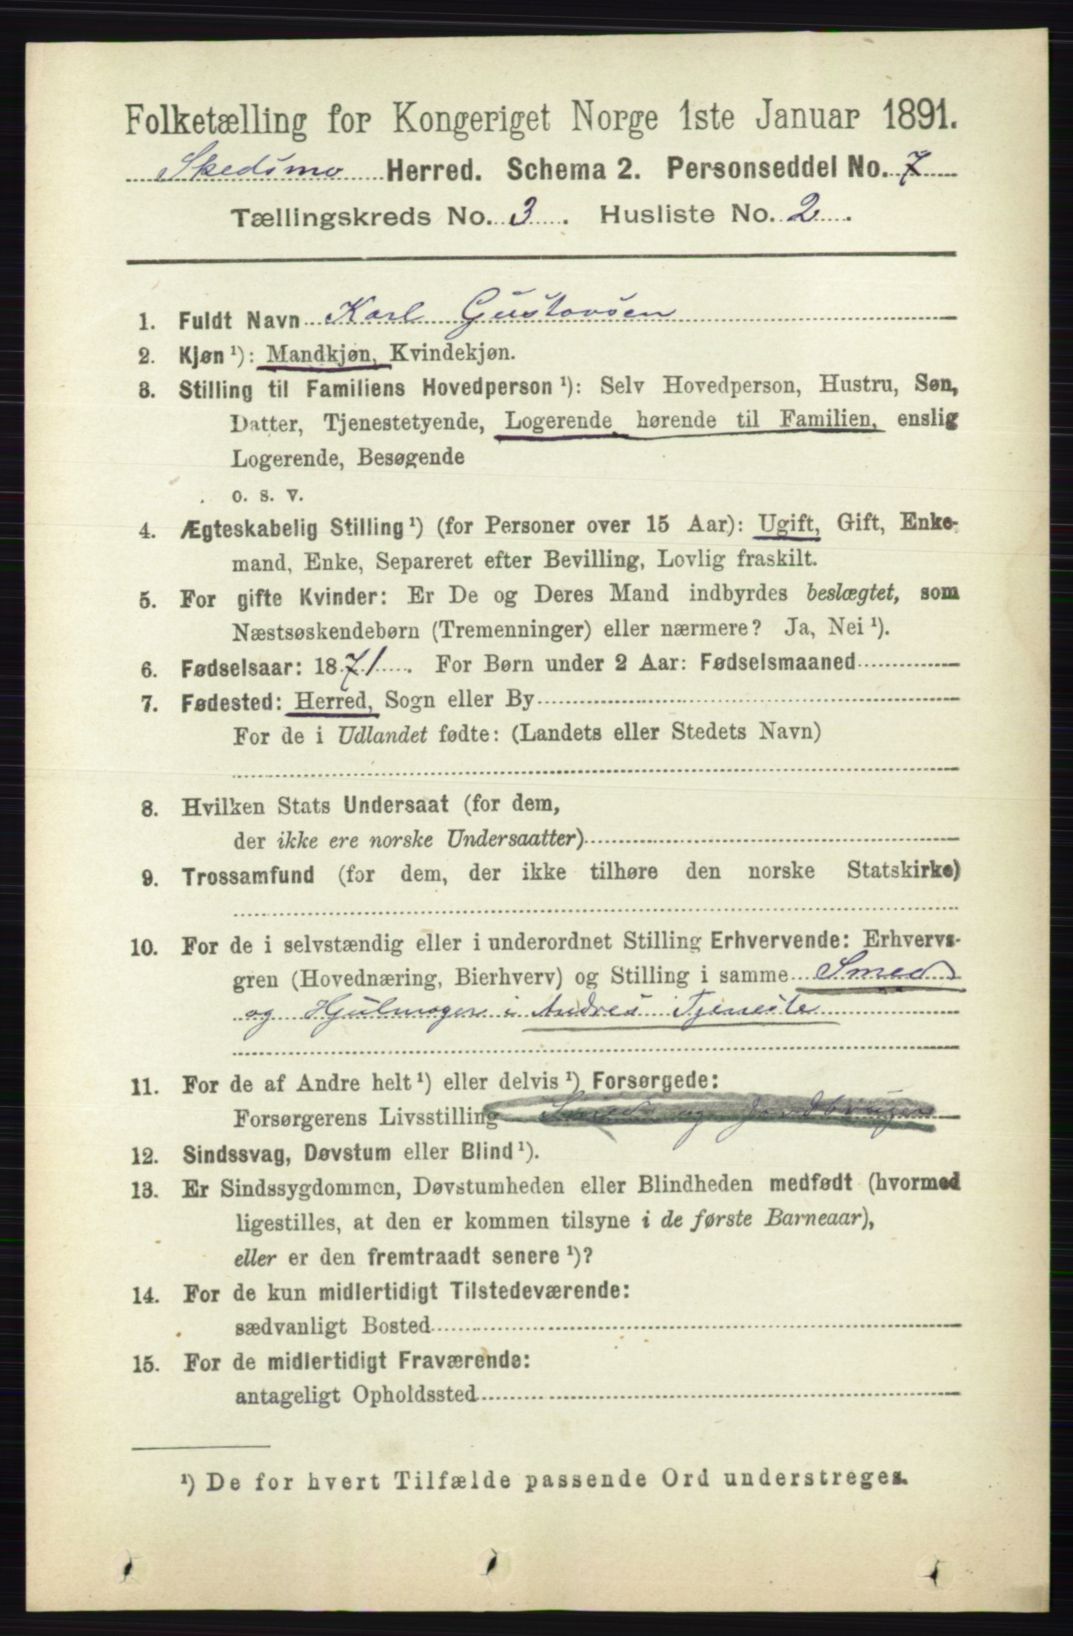 Folketælling for Kongeriget Norge 1ste Januar 1891.
Skedsmo Herred. Schema 2. Personseddel No. 7
Tællingskreds No. 3. Husliste No. 2.
1. Fuldt Navn Karl Gustavsen
2. Kjøn ¹): Mandkjøn, Kvindekjøn.
3. Stilling til Familiens Hovedperson ¹): Selv Hovedperson, Hustru, Søn,
Datter, Tjenestetyende, Logerende hørende til Familien, enslig
Logerende, Besøgende
o. s. v.
4. Ægteskabelig Stilling ¹) (for Personer over 15 Aar): Ugift, Gift, Enke-
mand, Enke, Separeret efter Bevilling, Lovlig fraskilt.
5. For gifte Kvinder: Er De og Deres Mand indbyrdes beslægtet, som
Næstsøskendebørn (Tremenninger) eller nærmere? Ja, Nei ¹).
6. Fødselsaar: 1871. For Børn under 2 Aar: Fødselsmaaned
7. Fødested: Herred, Sogn eller By
For de i Udlandet fødte: (Landets eller Stedets Navn)
8. Hvilken Stats Undersaat (for dem,
der ikke ere norske Undersaatter)
9. Trossamfund (for dem, der ikke tilhøre den norske Statskirke)
10. For de i selvstændig eller i underordnet Stilling Erhvervende: Erhvervs-
gren (Hovednæring, Bierhverv) og Stilling i samme Smed
og Hjulmager i Andres Tjeneste
11. For de af Andre helt ¹) eller delvis ¹) Forsørgede:
Forsørgerens Livsstilling Smed og Jordbruger
12. Sindssvag, Døvstum eller Blind ¹).
13. Er Sindssygdommen, Døvstumheden eller Blindheden medfødt (hvormed
ligestilles, at den er kommen tilsyne i de første Barneaar),
eller er den fremtraadt senere ¹)?
14. For de kun midlertidigt Tilstedeværende:
sædvanligt Bosted
15. For de midlertidigt Fraværende:
antageligt Opholdssted
¹) De for hvert Tilfælde passende Ord understreges.